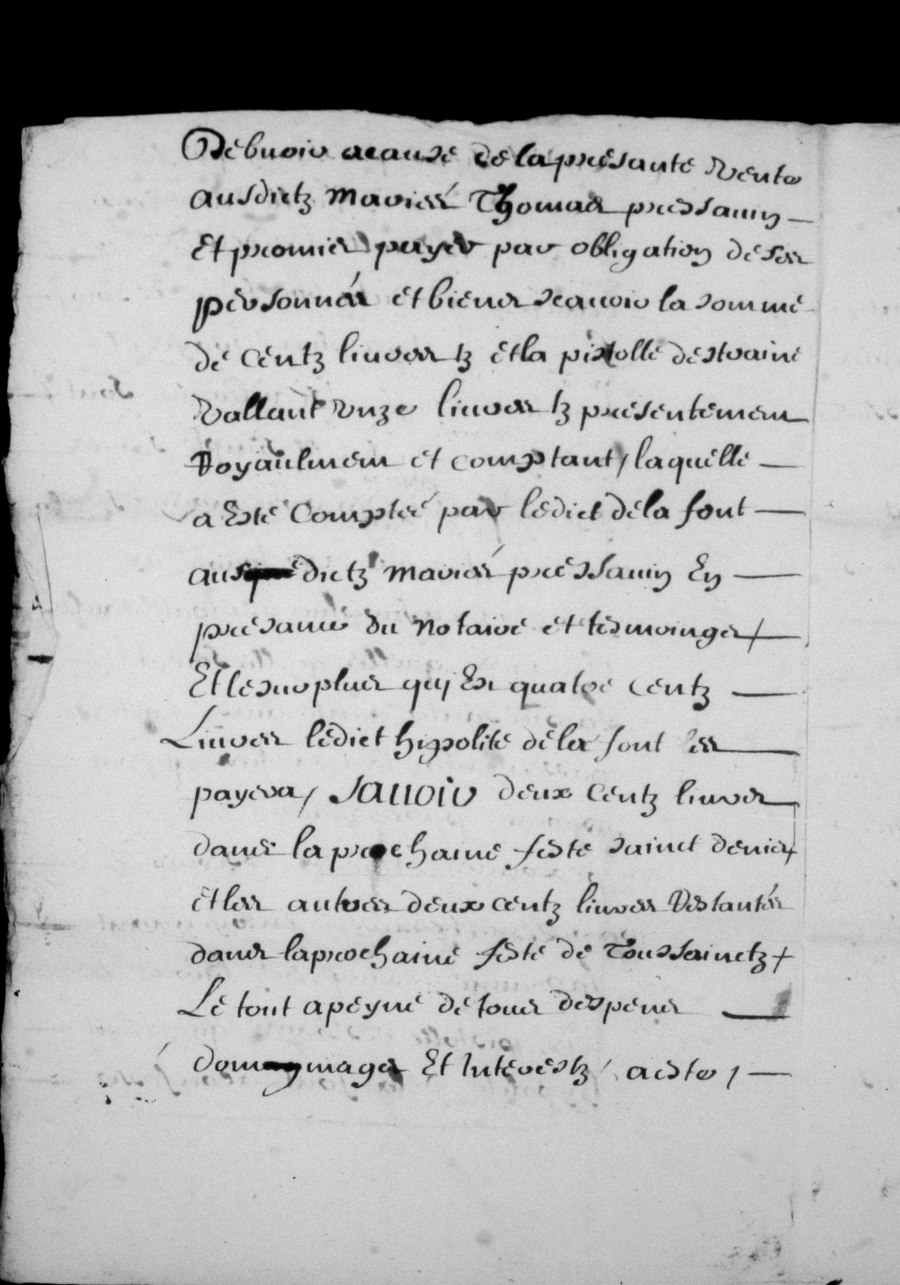 Debvoir acause de la presante vente
ausdictz mariés Thomas pressauin
Et promis payer par obligation de ses
personnes et biens scauoir la somme
de centz liures tz et la pistolle destraine
vallant unze liures tz presentement
Royaulment et comptant, laquelle
a Esté Comptéé par ledict dela font
aus dictz mariés pressauin En
presance du notaire et tesmoings
Et le surplus quj Est quatre centz
Liures ledict hipolite dela font les
payera, sauoir deux Centz liures
dans la prochaine feste sainct denis
et les autres deux centz liures Restantes
dans la prochaine feste de Toussainctz
Le tout a peyne de tous despens
dommages Et Interestz, aeste,